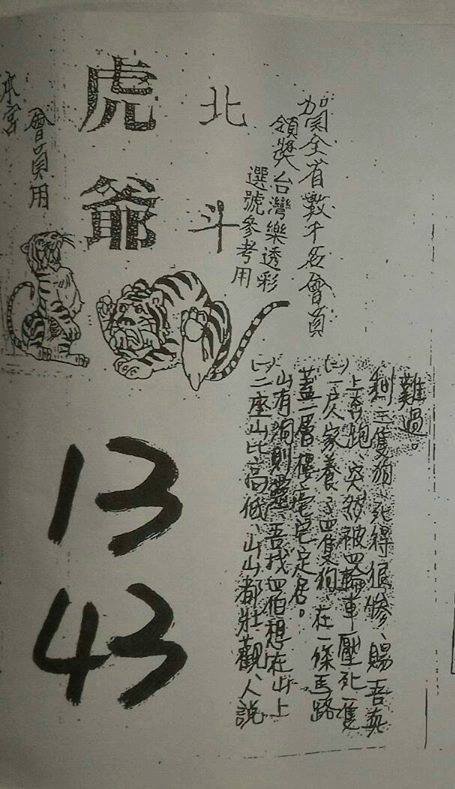 賀全省數千名會員
領獎台灣樂透彩
選號參考用
北斗
虎爺
會員用
本宮
(一)二座山比高低、山山都壯觀、人說
山有洞則靈、吾找四伯想在山上
蓋一層樓宅定居。
(二)一戶人家養了四隻狗、在一條馬路
上奔跑、突然被四輪車壓死一隻
剩三隻狗、死得很慘、賜吾真
難過。
13
43